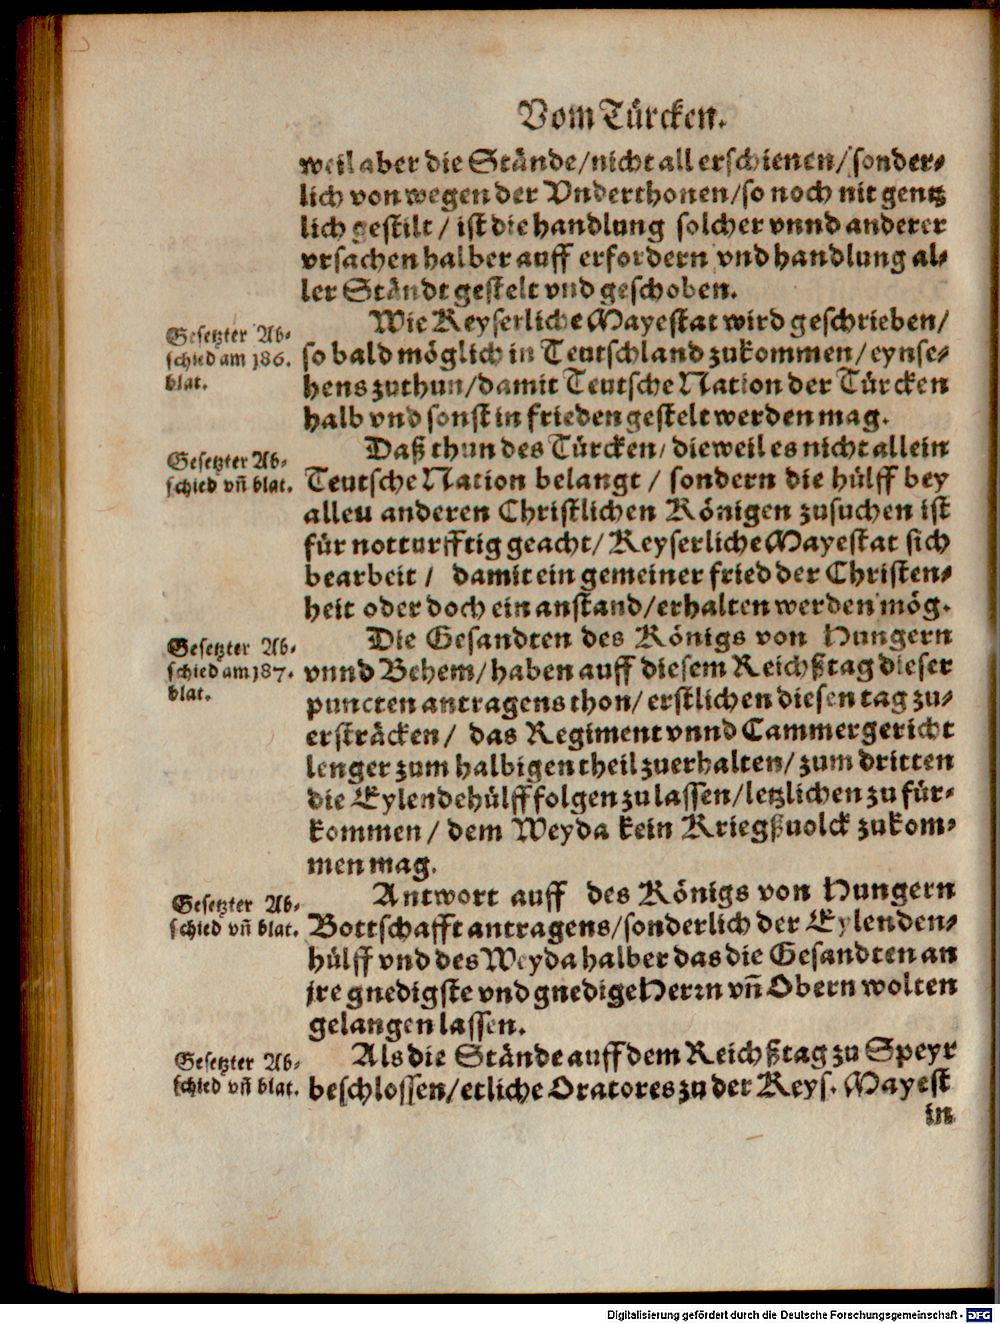 Vom Türcken.
weil aber die Stände/nicht all erschienen/sonder⸗
lich von wegen der Vnderthonen/so noch nit gentz
lich gestilt / ist die handlung solcher vnnd anderer
vrsachen halber auff erfordern vnd handlung al⸗
ler Ständt gestelt vnd geschoben.
Wie Keyserliche Mayestat wird geschrieben/
Gesetzter Ab⸗
schied am 186.
blat.
so bald möglich in Teutschland zukommen/eynse⸗
hens zuthun/damit Teutsche Nation der Türcken
halb vnd sonst in frieden gestelt werden mag.
Daß thun des Türcken/ dieweil es nicht allein
Gesetzter Ab⸗
schied vñ blat.
Teutsche Nation belangt / sondern die hülff bey
alleu anderen Christlichen Königen zusuchen ist
für notturfftig geacht/ Keyserliche Mayestat sich
bearbeit / damit ein gemeiner fried der Christen⸗
heit oder doch ein anstand/erhalten werden mög.
Die Gesandten des Königs von Hungern
Gesetzter Ab⸗
schied am 187.
blat.
vnnd Behem/haben auff diesem Reichßtag dieser
puncten antragens thon/ erstlichen diesen tag zu⸗
ersträcken/ das Regiment vnnd Cammergericht
lenger zum halbigen theil zuerhalten/ zum dritten
die Eylendehülff folgen zu lassen/letzlichen zu für⸗
kommen/ dem Weyda kein Kriegßuolck zukom⸗
men mag.
Antwort auff des Königs von Hungern
Gesetzter Ab⸗
schied vñ blat.
Bottschafft antragens/sonderlich der Eylenden⸗
hülff vnd des Weyda halber das die Gesandten an
jre gnedigste vnd gnedige Herꝛn vñ Obern wolten
gelangen lassen.
Als die Stände auff dem Reichßtag zu Speyr
Gesetzter Ab⸗
schied vñ blat.
beschlossen/etliche Oratores zu der Keys. Mayest
in
Digitalisierung gefördert durch die Deutsche Forschungsgemeinschaft - DFG